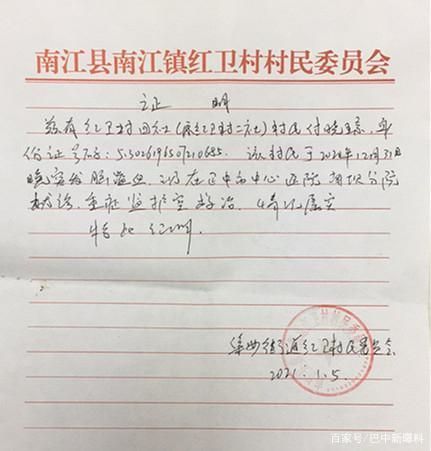 南江县南江镇红卫村村民委员会
证 明
兹有红卫村四社(原红卫村二社)村民付晓琼,身
份证号码:513026196507210685. 该村民于2020年12月31日
晚突发脑溢血,now在巴中市中心医院
救治,重症监护室救治,情况属实
特此证明.
集州街道红卫村民委员会
2021.1.5.
百家号/巴中新曝料